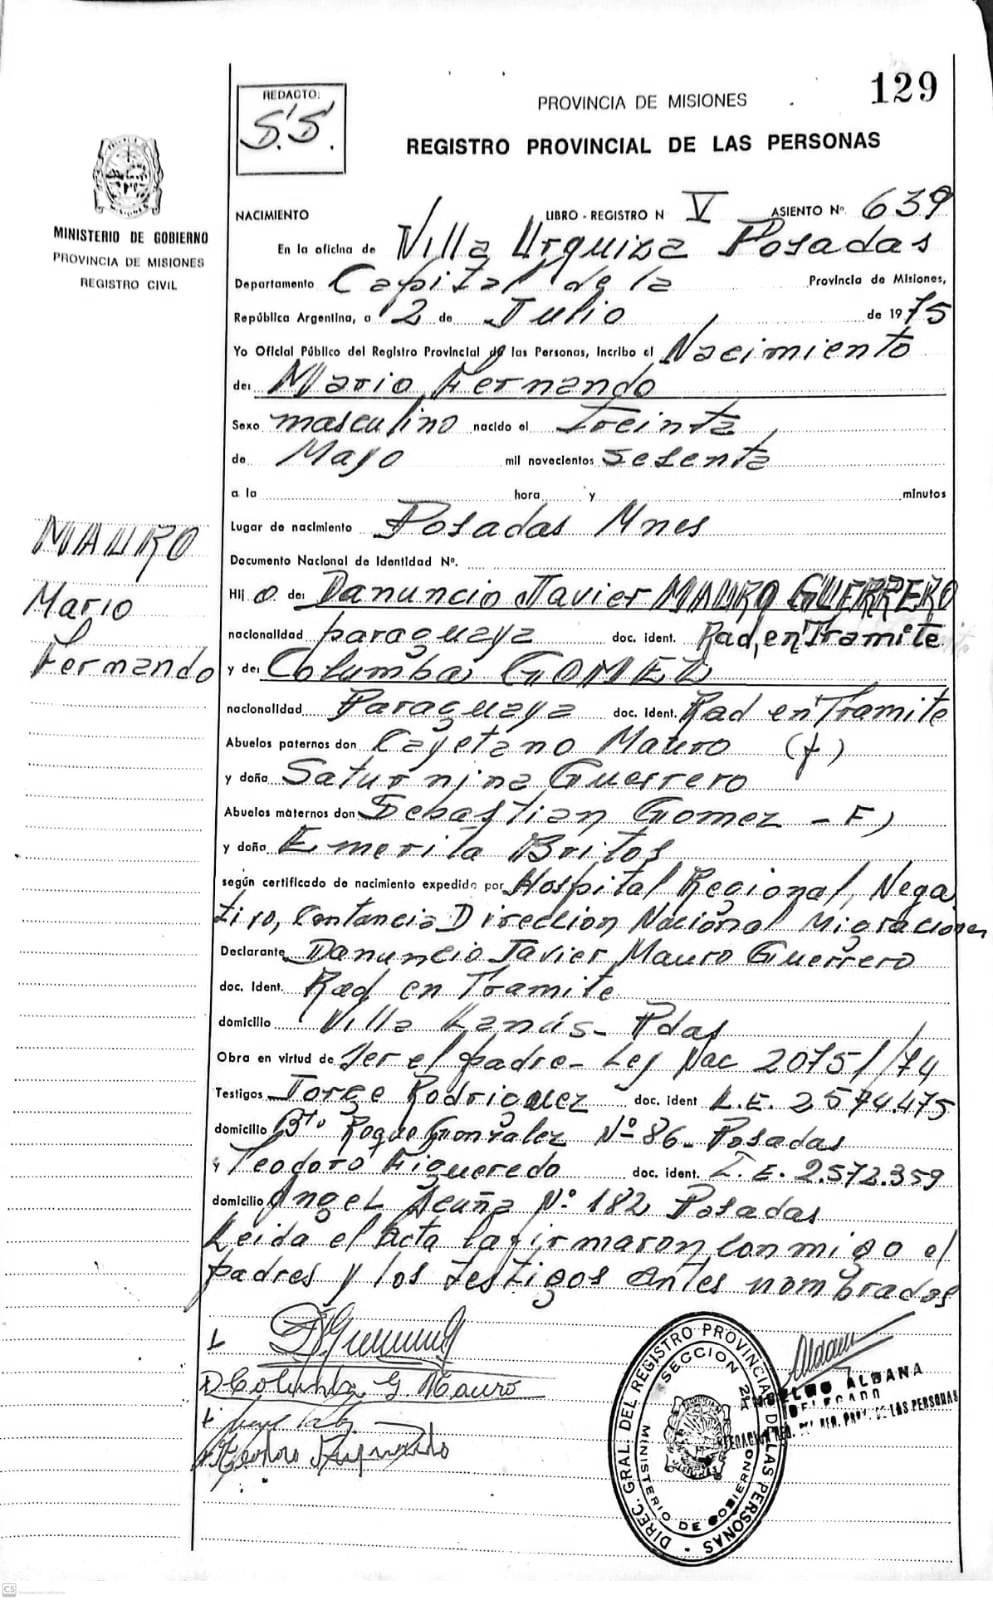 129
REDACTO:
S.S.
PROVINCIA DE MISIONES
REGISTRO PROVINCIAL DE LAS PERSONAS
MINISTERIO DE GOBIERNO
PROVINCIA DE MISIONES
REGISTRO CIVIL
NACIMIENTO LIBRO - REGISTRO N V ASIENTO Nº 639
En la oficina de Villa Urquiza Posadas
Departamento Capital de la Provincia de Misiones,
República Argentina, a 2 de Julio de 1975
Yo Oficial Público del Registro Provincial de las Personas, incribo el Nacimiento
de: Mario Fernando
Sexo masculino nacido el Treinta
de Mayo mil novecientos sesenta
a la hora y minutos
Lugar de nacimiento Posadas Mnes
Documento Nacional de Identidad Nº.
MAURO
Mario
Fernando
Hij o de: Danuncio Javier MAURO GUERRERO
nacionalidad paraguaya doc. ident. Rad, en Tramite
y de: Columba GOMEZ
nacionalidad Paraguaya doc. ident. Rad en Tramite
Abuelos paternos don Cayetano Mauro (f)
y doña Saturnina Guerrero
Abuelos maternos don Sebastian Gomez - F)
y doña Emerita Britos
según certificado de nacimiento expedido por Hospital Regional, Nega
tivo, Contancia Direccion Nacional Migraciones
Declarante Danuncio Javier Mauro Guerrero
doc. Ident. Rad en Tramite
domicilio Villa Lanús - Pdas
Obra en virtud de Ser el padre - Ley Nac 20751/74
Testigos Jorge Rodriguez doc. ident L.E. 2574.475
domicilio Bº Roque Gonzalez Nº 86 - Posadas
y Teodoro Figueredo doc. ident. L.E. 2.572.359
domicilio Angel Acuña Nº 182 Posadas
Leida el Acta la firmaron conmigo el
padres y los testigos antes nombrados
Columba G Mauro
Teodoro Figueredo
DIREC. GRAL. DEL REGISTRO PROVINCIAL DE LAS PERSONAS
SECCION 2ª
MINISTERIO DE GOBIERNO
ALDANA
DELEGADO
REG. PROV. DE LAS PERSONAS
CS